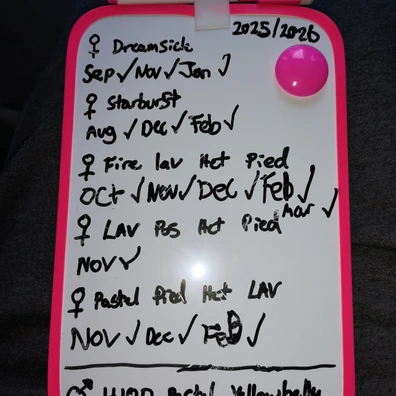 2025/2026
♀ Dreamsicle
Sep ✓ Nov ✓ Jan ✓
♀ Starburst
Aug ✓ Dec ✓ Feb ✓
♀ Fire lav Het Pied
Oct ✓ Nov ✓ Dec ✓ Feb ✓
Mar ✓
♀ Lav Pos Het Pied
Nov ✓
♀ Pastel Pied Het LAV
Nov ✓ Dec ✓ Feb ✓
♂ Pastel Yellowbelly